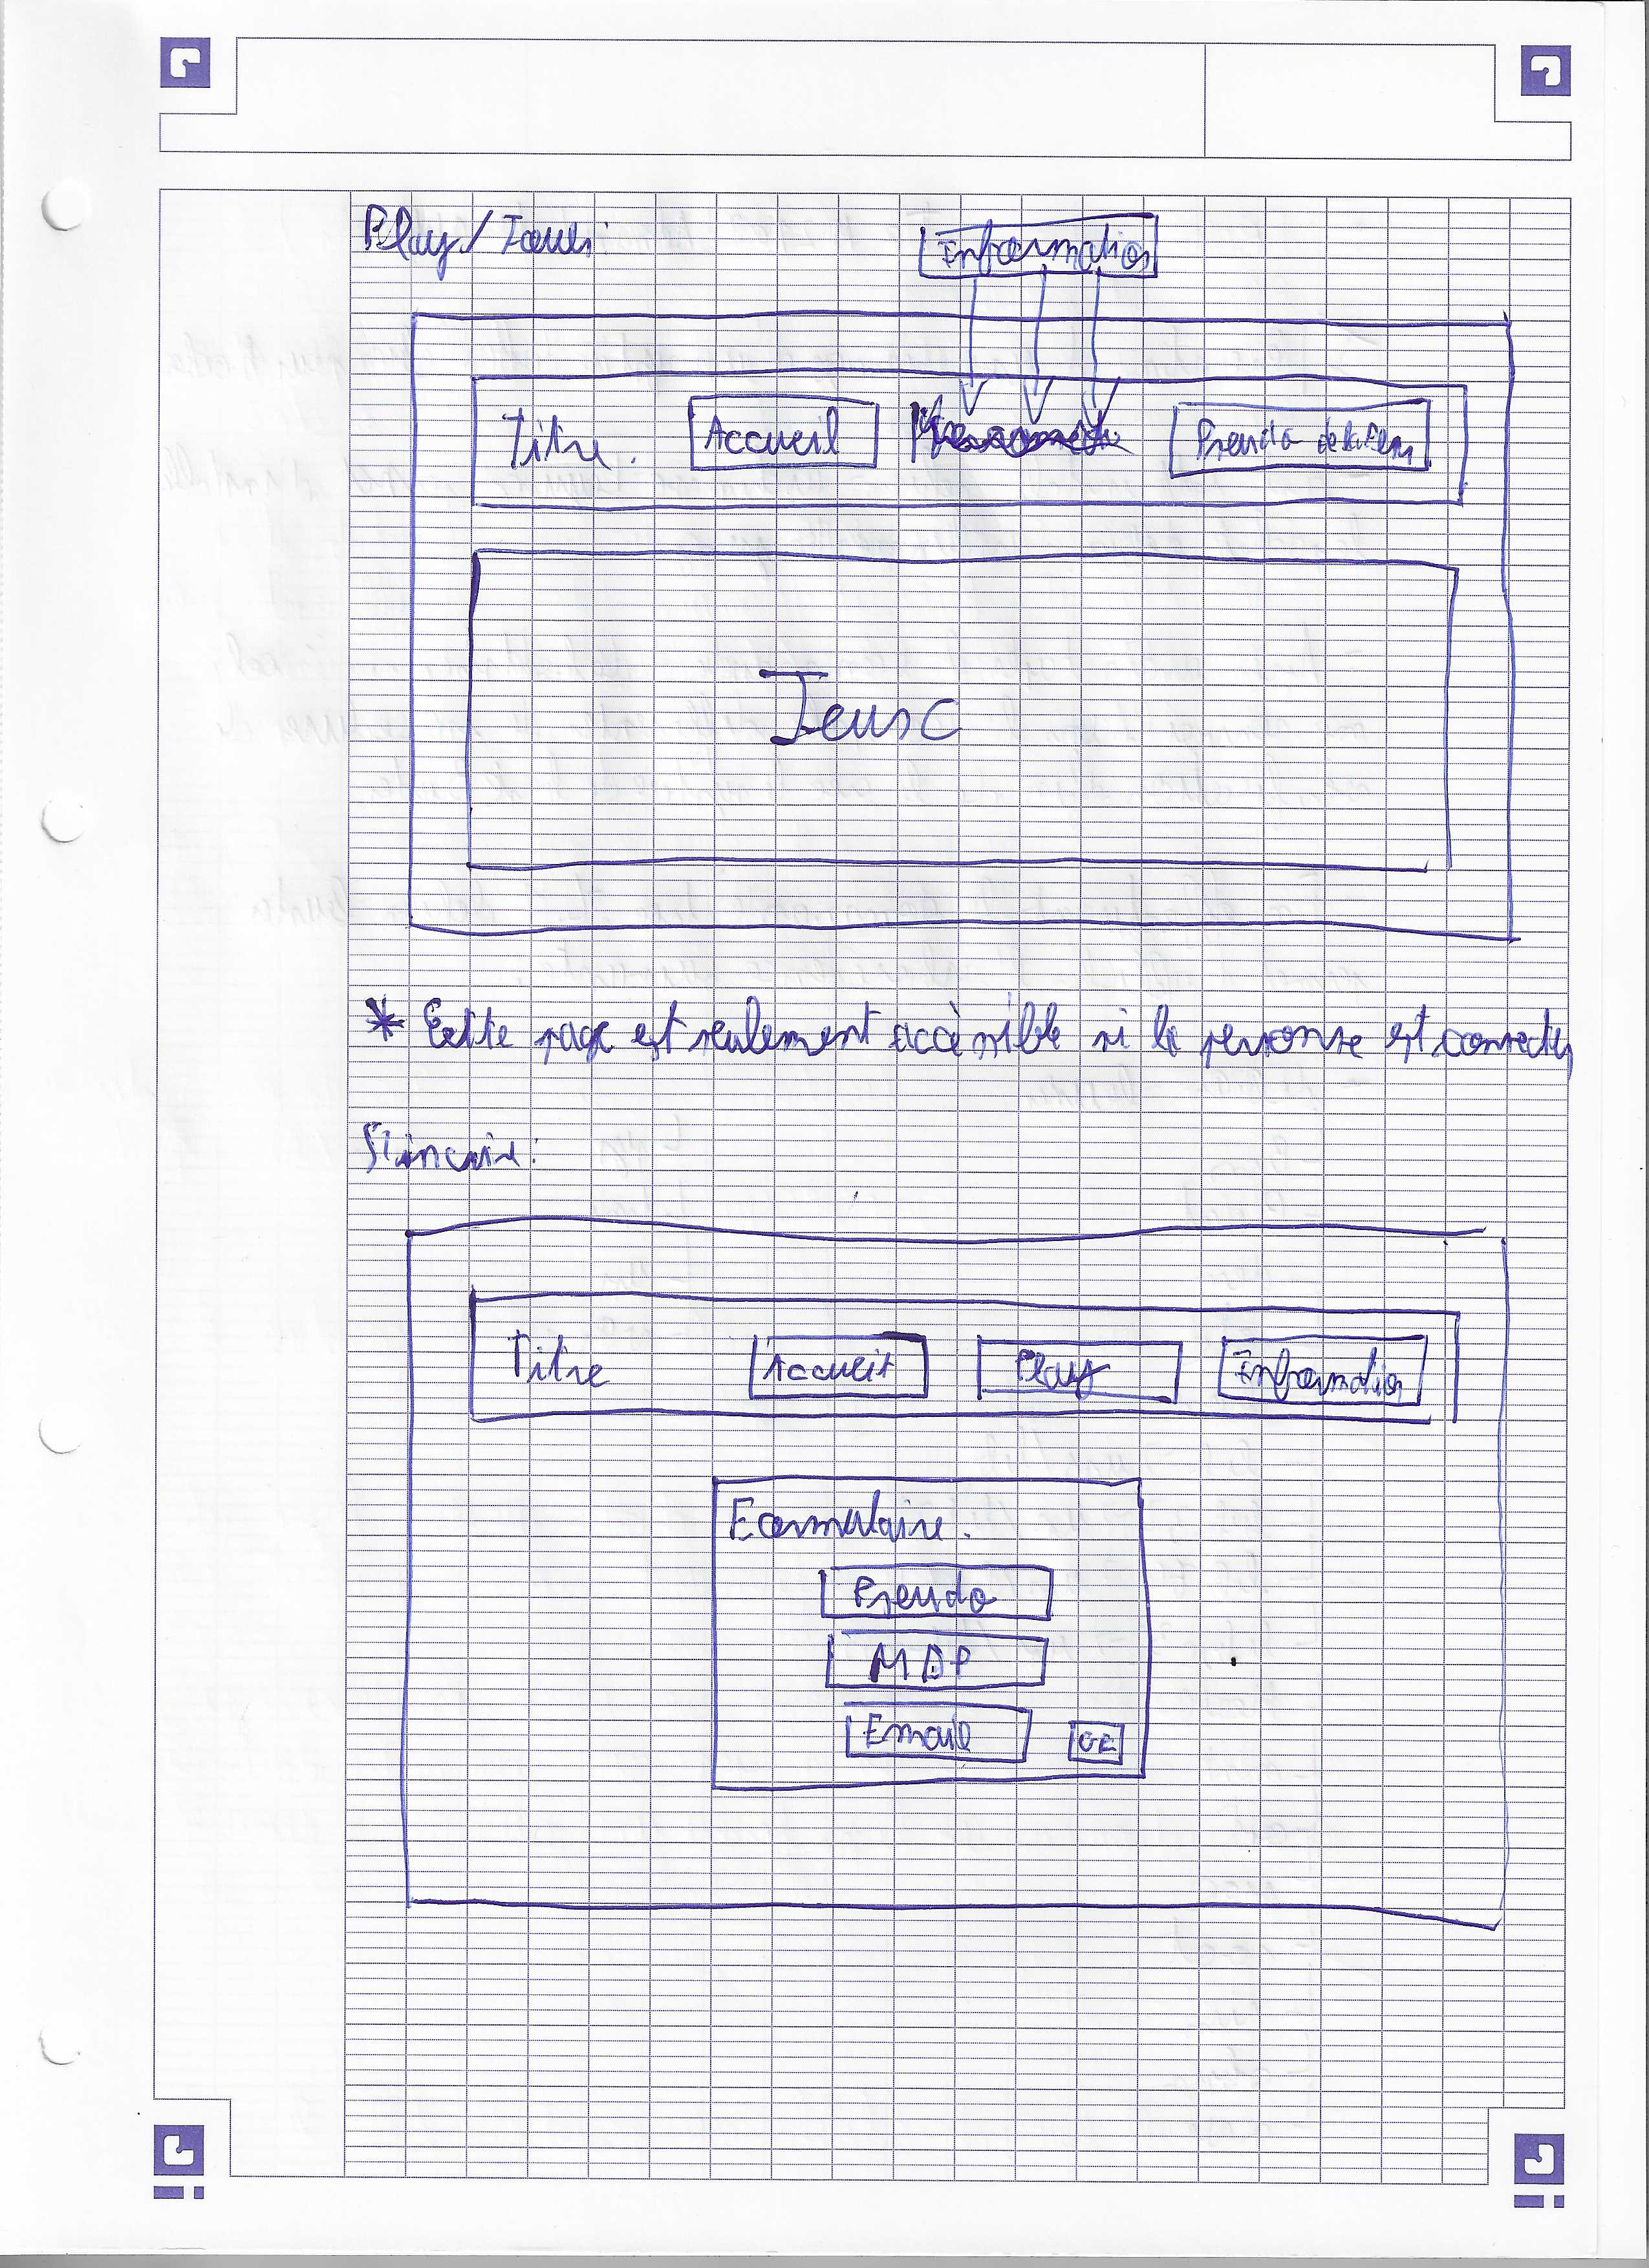 Play / Jouer:
Information
Titre. Accueil Pseudo de la Pers
Jeux
* Cette page est seulement accèssible si la personne est connecter
S'inscrire:
Titre Accueil Play Information
Formulaire.
Pseudo
MDP
Email OK